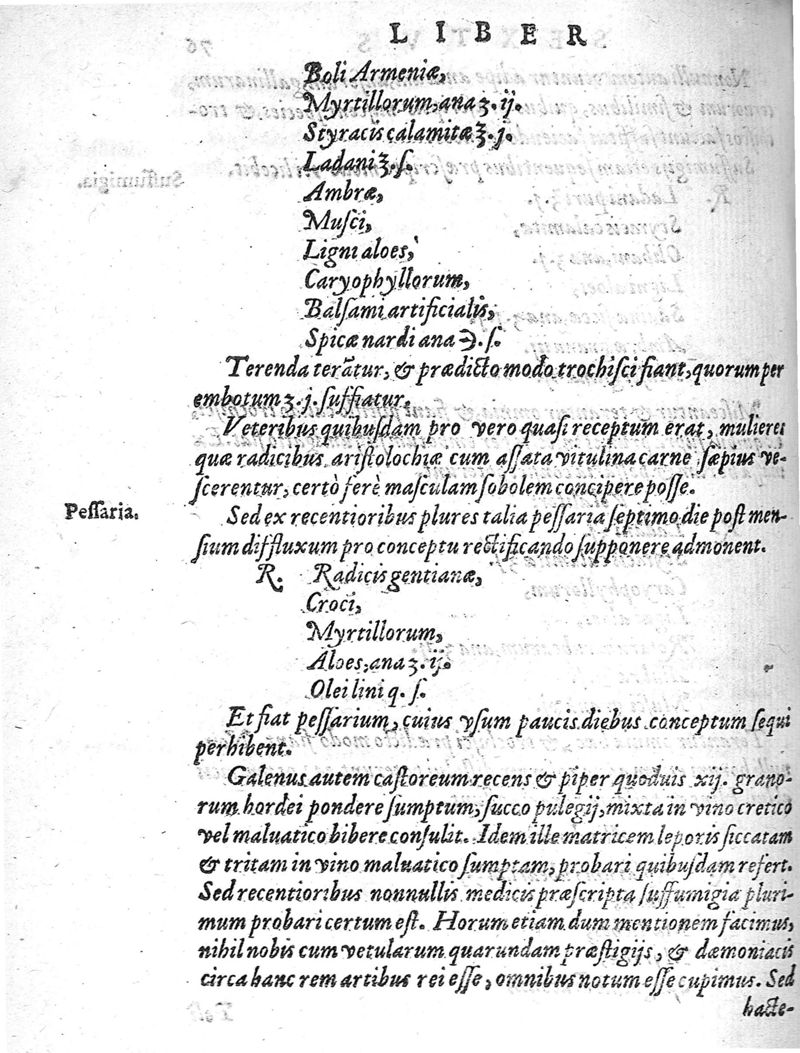 LIBER
Boli Armeniæ,
Myrtillorum, ana ʒ. ij.
Styracis calamitæ ʒ. j.
Ladani ʒ. ſ.
Ambræ,
Muſci,
Ligni aloes,
Caryophyllorum,
Balſami artificialis,
Spicæ nardi ana ℈. ſ.
Terenda terãtur, & prædicto modo trochiſci fiant, quorum per
embotum ʒ. j. ſuffiatur.
Veteribus quibuſdam pro vero quaſi receptum erat, mulieres
quæ radicibus ariſtolochiæ cum aſſata vitulina carne ſæpius ve-
ſcerentur, certò ferè maſculam ſobolem concipere poſſe.
Peſſaria.
Sed ex recentioribus plures talia peſſaria ſeptimo die poſt men-
ſium diffluxum pro conceptu rectificando ſupponere admonent.
R. Radicis gentianæ,
Croci,
Myrtillorum,
Aloes, ana ʒ. ij.
Olei lini q. ſ.
Et fiat peſſarium, cuius vſum paucis diebus conceptum ſequi
perhibent.
Galenus autem caſtoreum recens & piper quoduis xij. grano-
rum hordei pondere ſumptum, ſucco pulegij, mixta in vino cretico
vel maluatico bibere conſulit. Idem ille matricem leporis ſiccatam
& tritam in vino maluatico ſumptam, probari quibuſdam refert.
Sed recentioribus nonnullis medicis præſcripta ſuffumigia pluri-
mum probari certum eſt. Horum etiam dum mentionem facimus,
nihil nobis cum vetularum quarundam præſtigijs, & dæmoniacis
circa hanc rem artibus rei eſſe, omnibus notum eſſe cupimus. Sed
hacte-